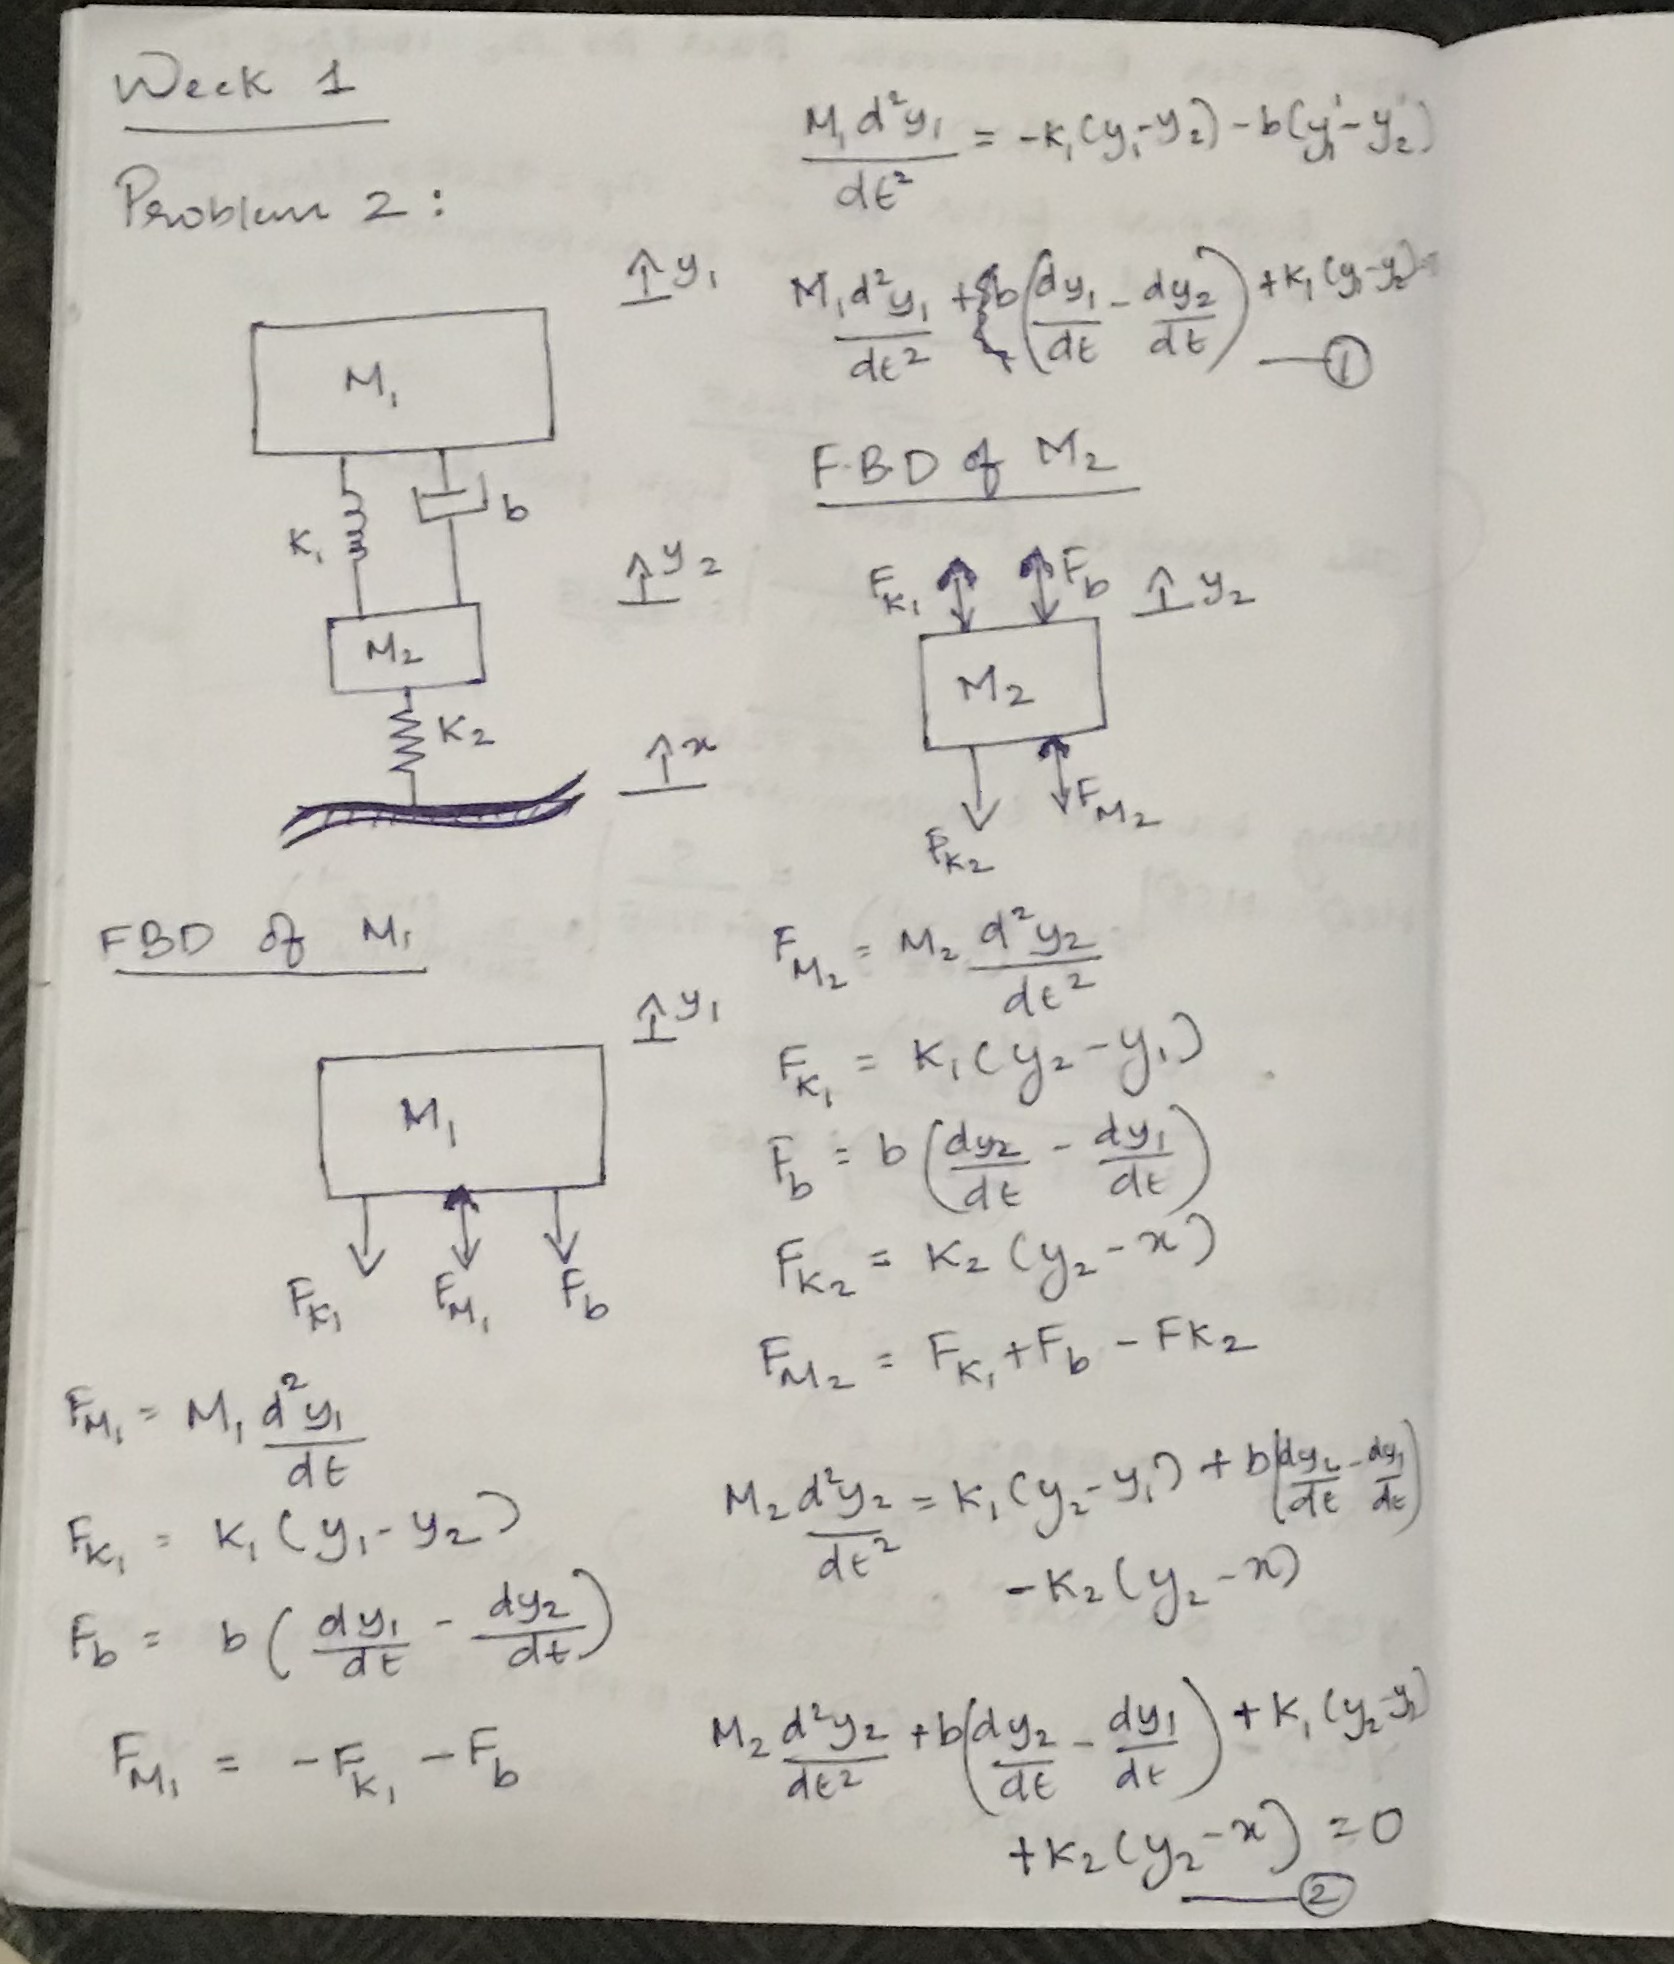 Week 1
Problem 2:
↑ y₁
M₁
K₁
b
↑ y₂
M₂
K₂
↑ x
FBD of M₁
↑ y₁
M₁
F_K₁ F_M₁ F_b
F_M₁ = M₁ d²y₁/dt
F_K₁ = K₁(y₁-y₂)
F_b = b(dy₁/dt - dy₂/dt)
F_M₁ = -F_K₁ - F_b
M₁d²y₁/dt² = -K₁(y₁-y₂) - b(y₁' - y₂')
M₁d²y₁/dt² + b(dy₁/dt - dy₂/dt) + K₁(y₁-y₂) =
— ①
F.B.D of M₂
F_K₁ F_b ↑ y₂
M₂
F_K₂ F_M₂
F_M₂ = M₂ d²y₂/dt²
F_K₁ = K₁(y₂-y₁)
F_b = b(dy₂/dt - dy₁/dt)
F_K₂ = K₂(y₂-x)
F_M₂ = F_K₁ + F_b - FK₂
M₂d²y₂/dt² = K₁(y₂-y₁) + b(dy₂/dt - dy₁/dt)
-K₂(y₂-x)
M₂d²y₂/dt² + b(dy₂/dt - dy₁/dt) + K₁(y₂-y₁)
+K₂(y₂-x) = 0
— ②